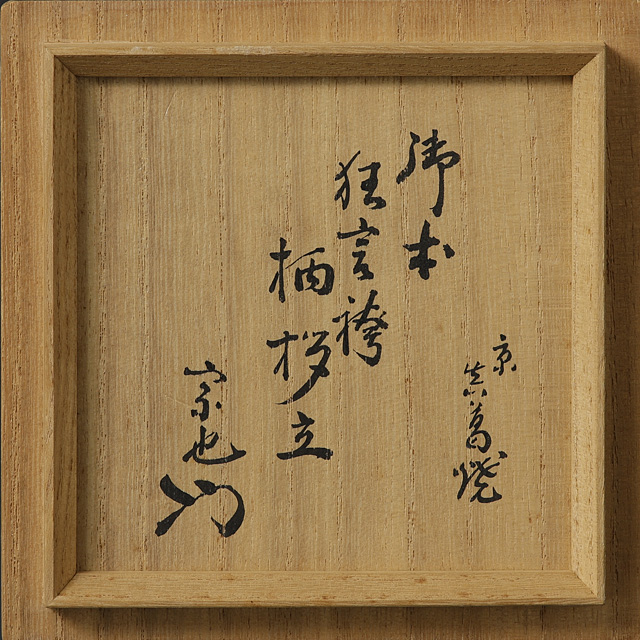 京
真葛焼
御本
狂言袴
柄杓立
宗也